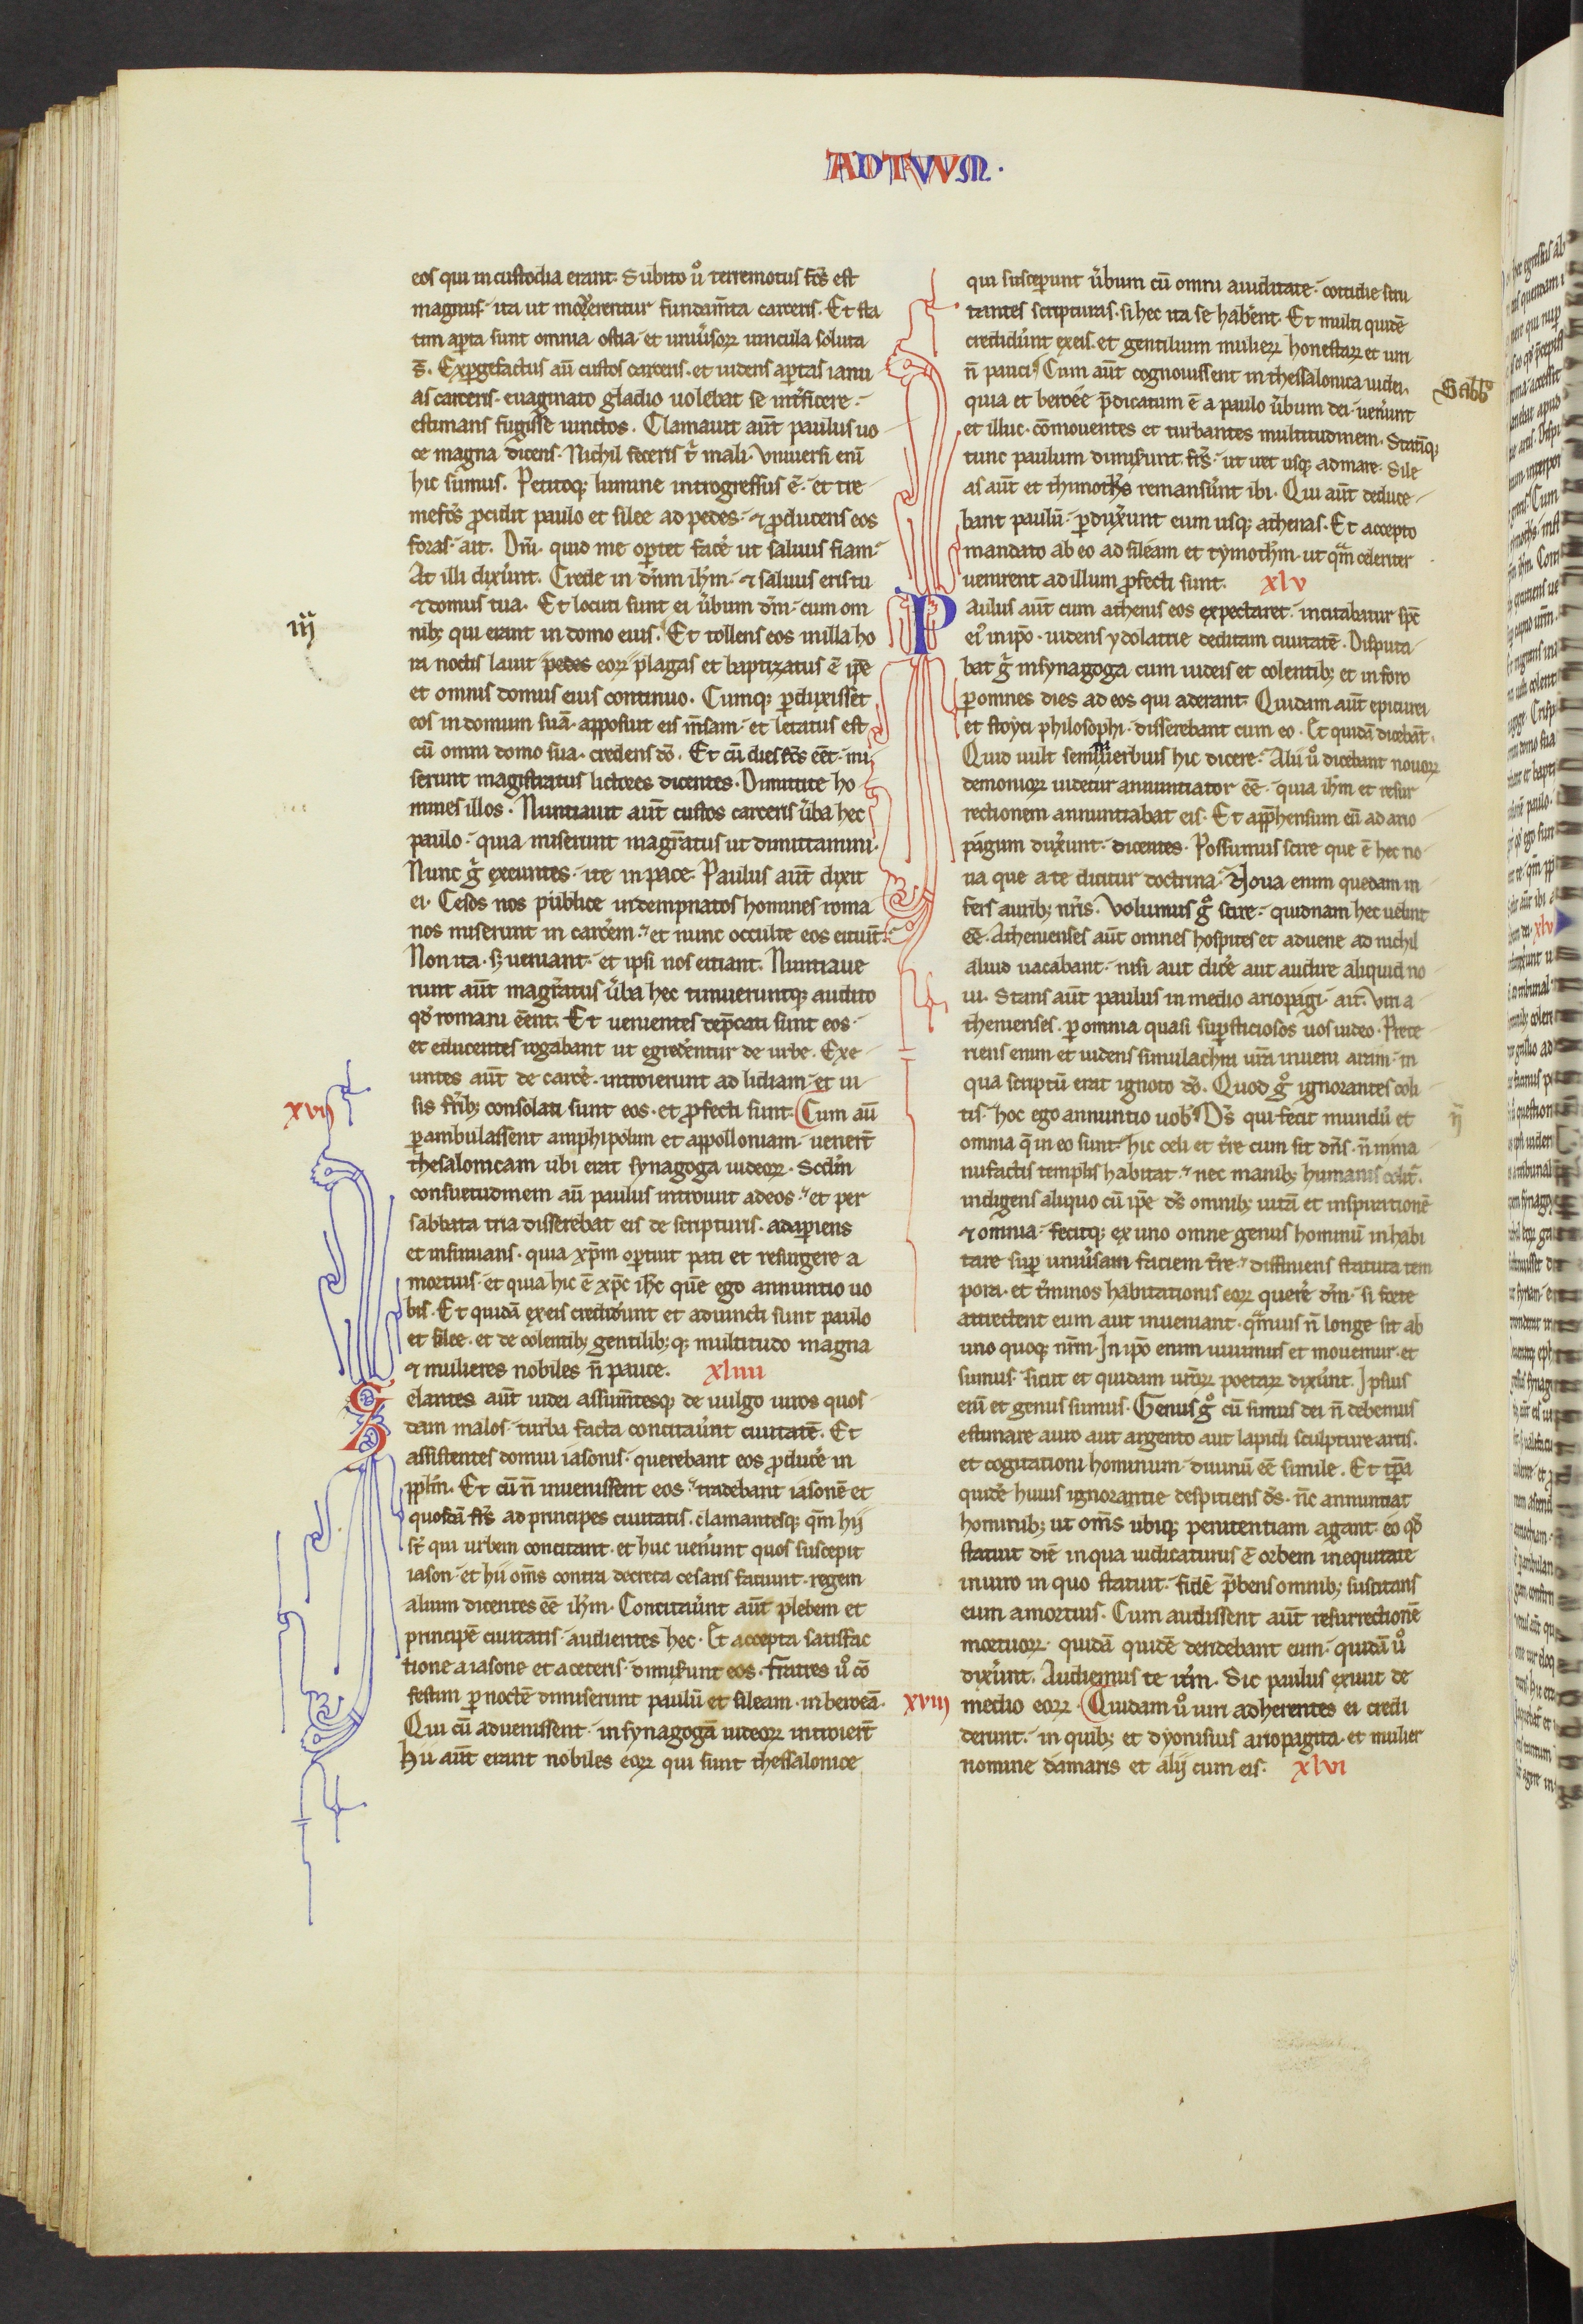 ACTUUM.
eos qui in custodia erant. Subito ů terremotus fcs̄ est
magnus· ita ut mouerentur fundam̄ta carceris. Et sta
tim aꝑta sunt omnia ostia· et uniũsoꝝ uincula soluta
s̄. Exꝑgefactus aū custos carceris. et uidens aꝑtas ianu
as carceris. euaginato gladio uolebat se int̾ficere·
estimans fugisse uinctos. Clamauit aūt paulus uo
ce magna dicens. Nichil feceris t̾ mali. Vniuersi eni
hic sumus. Petitoqꝫ lumine introgressus ē· et tre
mefcs̄ ꝓcidit paulo et silee ad pedes· ⁊ ꝓducens eos
foras· ait. Dn̄i. quid me oꝑtet face̾ ut saluus fiam·
At illi dixe̾unt. Crede in dn̄m ih̄m· ⁊ saluus eris tu
⁊ domus tua. Et locuti sunt ei ũbum dn̄i· cum om
nibꝫ qui erant in domo eius. Et tollens eos in illa ho
ra noctis lauit pedes eoꝝ plagas et baptizatus ē ip̄e
et omnis domus eius continuo. Cumqꝫ ꝑduxisset
eos in domum suā· apposuit eis m̄sam· et letatus est
cū omni domo sua· credens dō. Et cū dies fcs̄ eēt· mi
serunt magistratus lictores dicentes. Dimittite ho
mines illos. Nuntiauit aūt custos carceris ũba hec
paulo· quia miserunt magr̄atus ut dimittamini.
Nunc g̾ exeuntes· ite in pace. Paulus aūt dixit
ei. Cesos nos publice indempnatos homines roma
nos miserunt in carce̾em· et nunc occulte eos eiciūt·
Non ita· sꝫ ueniant· et ipsi nos eiciant. Nuntiaue
runt aūt magr̄atus ũba hec timueruntqꝫ audito
qd̾ romani eēnt. Et uenientes dep̄cati sunt eos·
et educentes rogabant ut egrede̾entur de urbe. Exe
untes aūt de carce̾· introierunt ad lidiam· et ui
xvii
sis fr̄ibꝫ consolati sunt eos· et ꝓfecti sunt. Cum aū
ꝑambulassent amphipolim et appolloniam· uener̄t
thesalonicam ubi erat synagoga iudeoꝝ. Scd̄m
consuetudinem aū paulus introiuit ad eos· et per
sabbata tria disserebat eis de scripturis. adaꝑiens
et insinuans· quia xp̄m oꝑtuit pati et resurgere a
mortuis· et quia hic ē xp̄c ih̄c quē ego annuntio uo
bis. Et quidā ex eis credide̾unt et adiuncti sunt paulo
et silee· et de colentibꝫ gentilibꝫqꝫ multitudo magna
⁊ mulieres nobiles n̄ pauce. xliiii
Zelantes aūt iudei assum̄tesqꝫ de uulgo uiros quos
dam malos· turba facta concitaue̾unt ciuitatē. Et
assistentes domui iasonis· querebant eos ꝓduce̾ in
ppl̄m. Et cū n̄ inuenissent eos· tradebant iasonē et
quosdā fr̄s ad principes ciuitatis. clamantesqꝫ qm̄ hij
st̄ qui urbem concitant· et huc uene̾unt quos suscepit
iason· et hii om̄s contra decreta cesaris faciunt· regem
alium dicentes eē ih̄m. Concitaue̾unt aūt plebem et
principē ciuitatis· audientes hec. Et accepta satisfac
tione a iasone et a ceteris· dimise̾unt eos. Fratres ů cō
festim ꝑ noctē dimiserunt paulū et sileam· in beroeā.
Qui cū aduenissent· in synagogā iudeoꝝ introier̄t
Hii aūt erant nobiles eoꝝ qui sunt thessalonice
iij
qui susceꝑunt ũbum cū omni auiditate· cottidie scru
tantes scripturas· si hec ita se habe̾ent. Et multi quidē
credide̾unt ex eis. et gentilium mulieꝝ honestaꝝ et uiri
n̄ pauci. Cum aūt cognouissent in thessalonica iudei.
quia et beroée p̄dicatum ē a paulo ũbum dei· uene̾unt
et illuc· cōmouentes et turbantes multitudinem. Statīqꝫ
tunc paulum dimise̾unt fr̄s· ut iret usqꝫ ad mare. Sile
as aūt et thimoth̾s remanse̾unt ibi. Qui aūt deduce
bant paulū· ꝑduxe̾unt eum usqꝫ athenas. Et accepto
mandato ab eo ad sileam et tymoth̾m· ut qm̄ celeriter
uenirent ad illum ꝓfecti sunt. xlv
Paulus aūt cum athenis eos expectaret· incitabatur sp̄c
ei' in ip̄o· uidens ydolatrie deditam ciuitatē. Disputa
bat g̾ in synagoga cum iudeis et colentibꝫ et in foro
ꝑ omnes dies ad eos qui aderant. Quidam aūt epicurei
et stoyci philosophi· disserebant cum eo. Et quidā dicebāt.
Quid uult seminiuerbius hic dicere. Alii ů dicebant nouoꝝ
demonioꝝ uidetur annuntiator eē· quia ih̄m et resur
rectionem annuntiabat eis. Et app̄hensum eū ad ario
pagum duxe̾unt· dicentes. Possumus scire que ē hec no
ua que a te dicitur doctrina· Noua enim quedam in
fers auribꝫ nr̄is. Volumus g̊ scire· quidnam hec uelint
eē. Athenienses aūt omnes hospites et aduene ad nichil
aliud uacabant· nisi aut dice̾ aut audire aliquid no
ui. Stans aūt paulus in medio ariopagi· ait. Viri a
thenienses. ꝑ omnia quasi suꝑsticiosos uos uideo. Prete
riens enim et uidens simulachra ur̄a inueni aram· in
qua scriptū erat ignoto dō. Quod g̊ ignorantes coli
tis· hoc ego annuntio uob̾. Ds̄ qui fecit mundū et
omnia q̄ in eo sunt· hic celi et tr̄e cum sit dn̄s· n̄ in ma
nufactis templis habitat· nec manibꝫ humanis colit̾·
indigens aliquo cū ip̄e ds̄ omnibꝫ uitā et inspirationē
⁊ omnia· fecitqꝫ ex uno omne genus hominū inhabi
tare suꝑ uniũsam faciem tr̄e· diffiniens statuta tem
pora· et t̾minos habitationis eoꝝ quere̾ dn̄m· si forte
attrectent eum aut inueniant· qm̄uis n̄ longe sit ab
uno quoqꝫ nr̄m. In ip̄o enim uiuimus et mouemur· et
sumus· sicut et quidam ur̄oꝝ poetaꝝ dixe̾unt. Ipsius
eni et genus sumus. Genus g̊ cū simus dei n̄ debemus
estimare auro aut argento aut lapidi sculpture artis.
et cogitationi hominum· diuinū eē simile. Et tp̄a
quidē huius ignorantie despiciens ds̄· nc̄ annuntiat
hominibꝫ ut om̄s ubiqꝫ penitentiam agant· eo qd̾
statuit diē in qua iudicaturus ē orbem in equitate
in uiro in quo statuit· fidē p̄bens omnibꝫ suscitans
eum a mortuis. Cum audissent aūt resurrectionē
mortuoꝝ· quidā quidē deridebant eum· quidā ů
dixe̾unt. Audiemus te it̾m. Sic paulus exiuit de
xviii
medio eoꝝ. Quidam ů uiri adherentes ei credi
derunt· in quibꝫ et dyonisius ariopagita· et mulier
nomine damaris et alij cum eis. xlvi